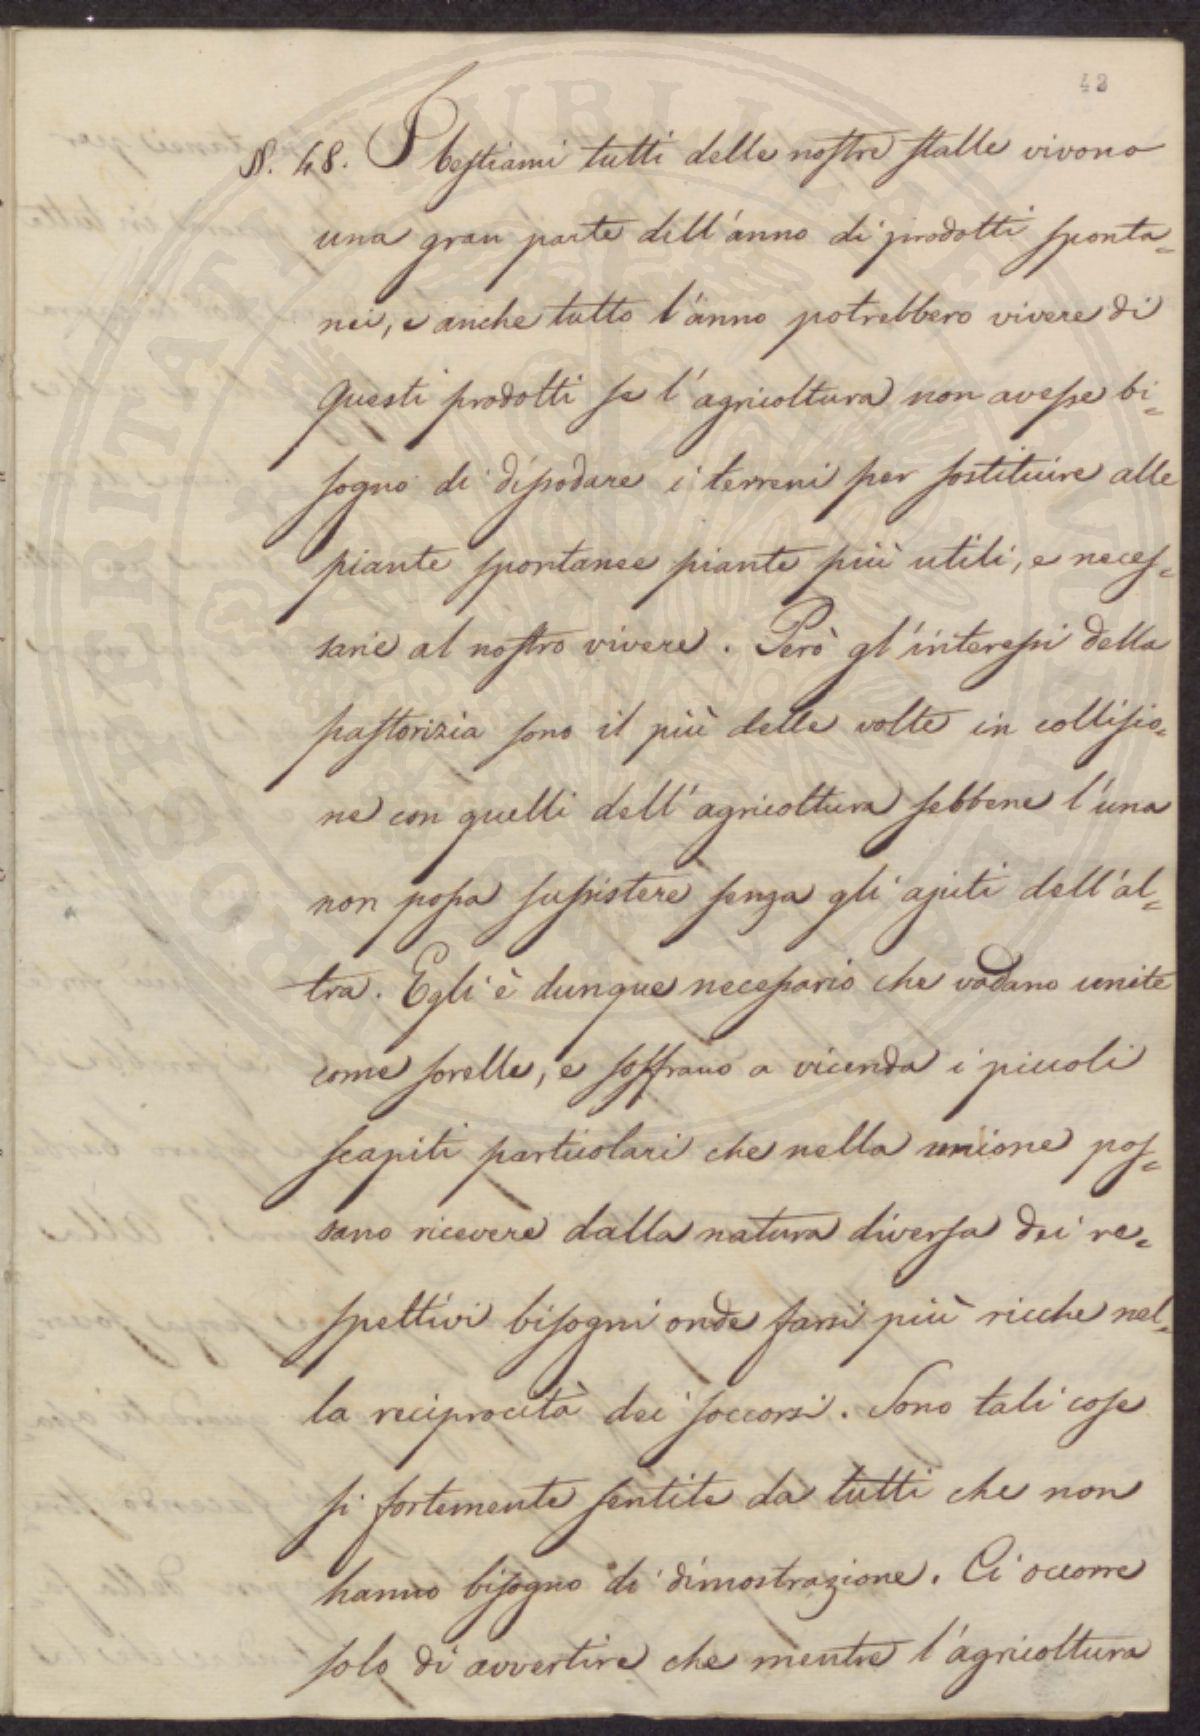 42
§. 48. I bestiami tutti delle nostre stalle vivono
una gran parte dell'anno di prodotti sponta=
nei, e anche tutto l'anno potrebbero vivere di
questi prodotti se l'agricoltura non avesse bi=
sogno di dissodare i terreni per sostituire alle
piante spontanee piante più utili, e neces=
sarie al nostro vivere. Però gl'interessi della
pastorizia sono il più delle volte in collisio=
ne con quelli dell'agricoltura sebbene l'una
non possa sussistere senza gli ajuti dell'al=
tra. Egli è dunque necessario che vadano unite
come sorelle, e soffrano a vicenda i piccoli
scapiti particolari che nella unione pos=
sano ricevere dalla natura diversa dei re=
spettivi bisogni onde farsi più ricche nel=
la reciprocità dei soccorsi. Sono tali cose
si fortemente sentite da tutti che non
hanno bisogno di dimostrazione. Ci occorre
solo di avvertire che mentre l'agricoltura